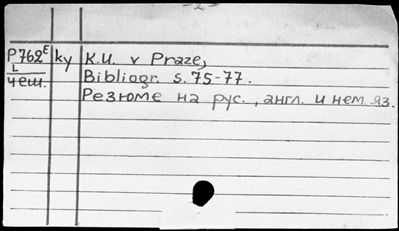 -2-
P762E ky K.U. v Praze,
L Bibliogr. s. 75-77.
чеш. Резюме на рус., англ. и нем. яз.